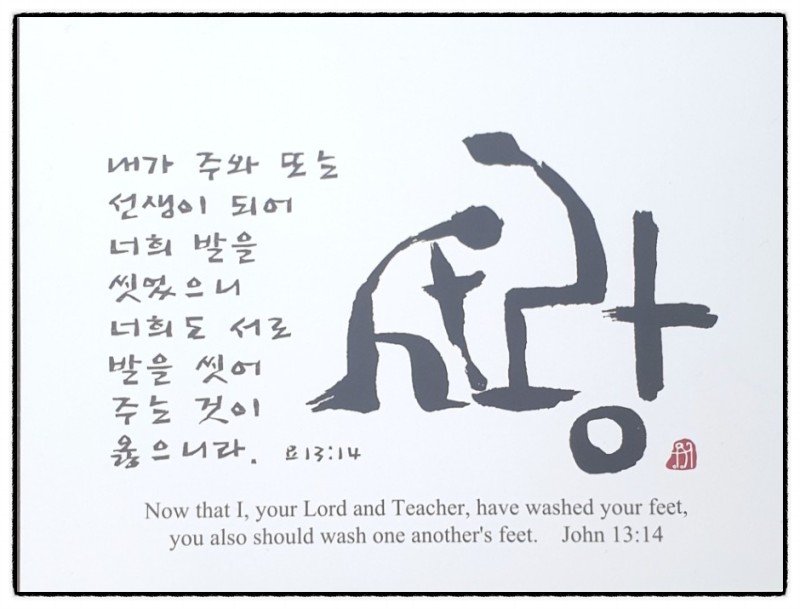 내가 주와 또는
선생이 되어
너희 발을
씻었으니
너희도 서로
발을 씻어
주는 것이
옳으니라. 요13:14
사랑
Now that I, your Lord and Teacher, have washed your feet,
you also should wash one another's feet. John 13:14